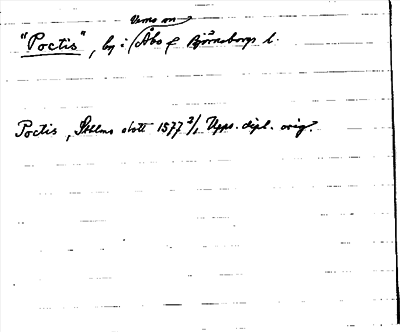 Vemo sn
"Poctis", by i (Åbo o Björneborgs l.
Poctis, Sthlms slott 1577 2/1 Upps. dipl. orig.